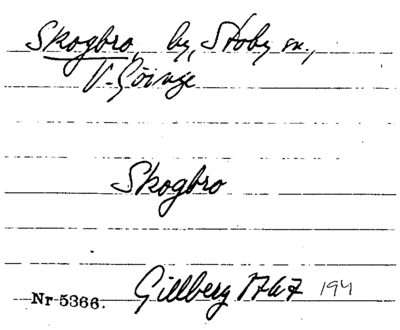 Skogbro, by, Stoby sn.,
V. Göinge
Skogbro
Nr 5366. Gillberg 1767 194